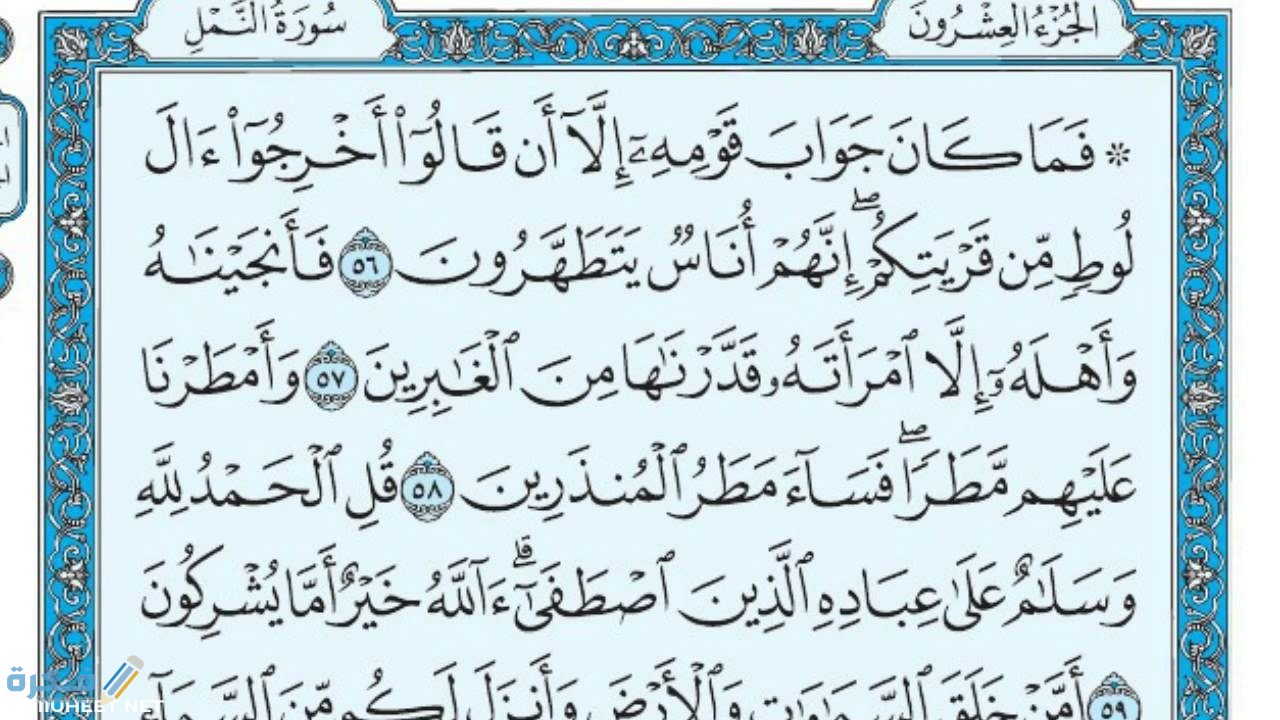 الجُزْءُ العِشْرُونَ
سُورَةُ النَّمْلِ
* فَمَا كَانَ جَوَابَ قَوْمِهِۦٓ إِلَّآ أَن قَالُوٓا۟ أَخْرِجُوٓا۟ ءَالَ
لُوطٍ مِّن قَرْيَتِكُمْ ۖ إِنَّهُمْ أُنَاسٌ يَتَطَهَّرُونَ ٥٦ فَأَنجَيْنَـٰهُ
وَأَهْلَهُۥٓ إِلَّا ٱمْرَأَتَهُۥ قَدَّرْنَـٰهَا مِنَ ٱلْغَـٰبِرِينَ ٥٧ وَأَمْطَرْنَا
عَلَيْهِم مَّطَرًا ۖ فَسَآءَ مَطَرُ ٱلْمُنذَرِينَ ٥٨ قُلِ ٱلْحَمْدُ لِلَّهِ
وَسَلَـٰمٌ عَلَىٰ عِبَادِهِ ٱلَّذِينَ ٱصْطَفَىٰٓ ۗ ءَآللَّهُ خَيْرٌ أَمَّا يُشْرِكُونَ
٥٩ أَمَّنْ خَلَقَ ٱلسَّمَـٰوَٰتِ وَٱلْأَرْضَ وَأَنزَلَ لَكُم مِّنَ ٱلسَّمَآءِ
فكرة